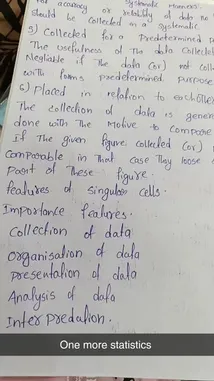 accuracy systematic manner.
or reliability of data no
should be collected in a systematic
5) Collected for a Predetermined p
The usefulness of the data collected
Negliable if the data (or) not coll
with forms predetermined purpose
6) Placed in relation to eachother
The collection of data is gener
done with the Motive to compare
If the given figure collected (or)
Comparable in that case they loose
Part of These figure.
features of singular cells.
Importance features.
Collection of data
Organisation of data
presentation of data
Analysis of data
Interpredation.
One more statistics